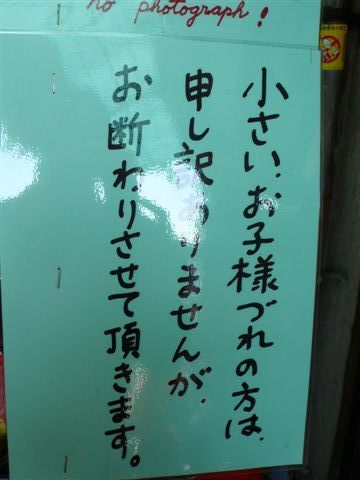 no photograph!
小さい、お子様づれの方は、
申し訳ありませんが、
お断わりさせて頂きます。